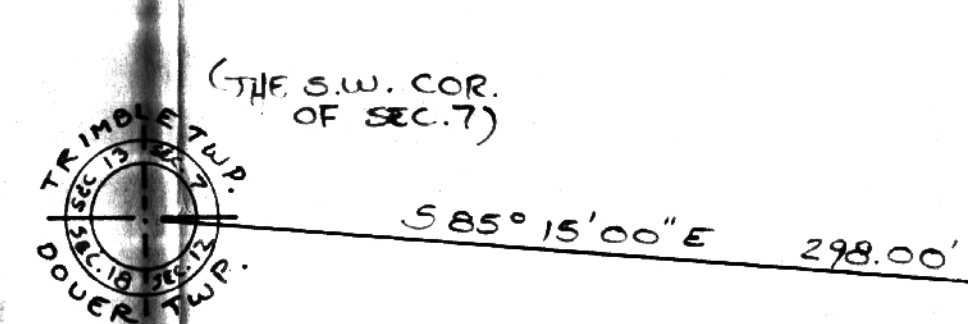 (THE S.W. COR.
OF SEC.7)
TRIMBLE TWP.
SEC 13
SEC. 7
SEC. 18
SEC. 12
DOVER TWP.
S 85° 15' 00" E 298.00'